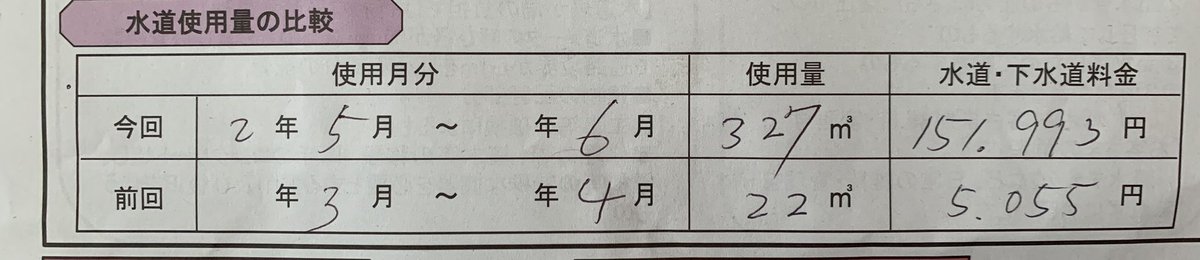 水道使用量の比較
使用月分 使用量 水道・下水道料金
今回 2年5月 ～ 年6月 327㎥ 151.993円
前回 年3月 ～ 年4月 22㎥ 5.055円